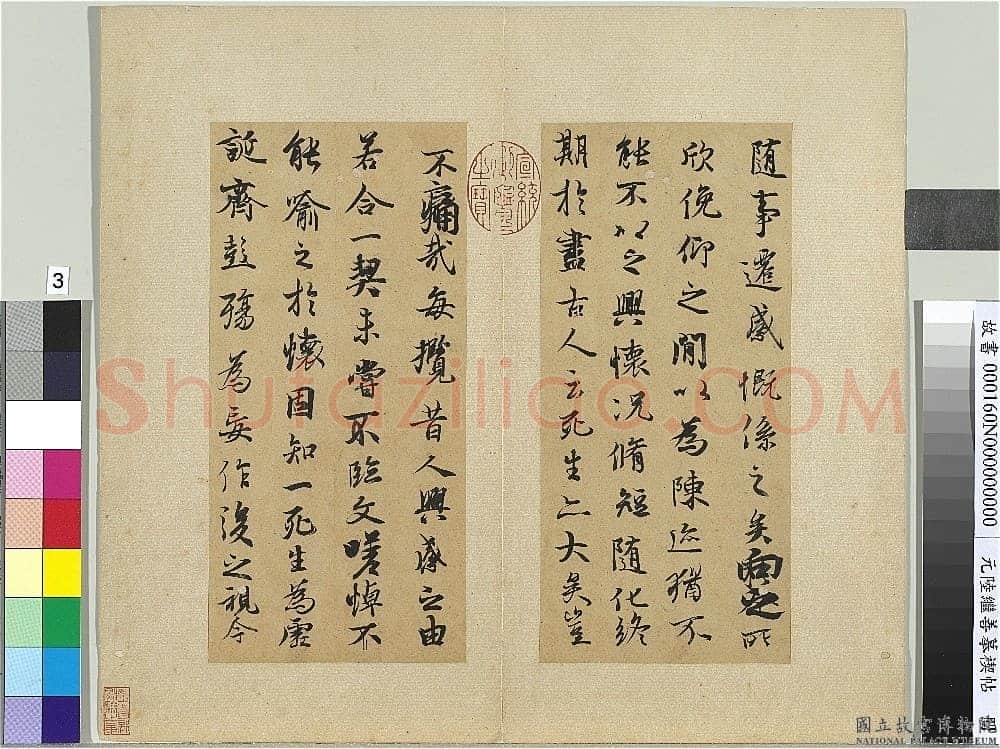 随事遷感慨係之矣向之所
欣俛仰之閒以為陳迹猶不
能不以之興懷况脩短随化終
期於盡古人云死生亦大矣豈
不痛哉每攬昔人興感之由
若合一契未嘗不臨文嗟悼不
能喻之於懷固知一死生為虛
誕齊彭殤為妄作後之視今
宣統御覽之寶
3
Shufaziliao.COM
故書 000160N000000000
元陸繼善摹禊帖
國立故宮博物院
NATIONAL PALACE MUSEUM